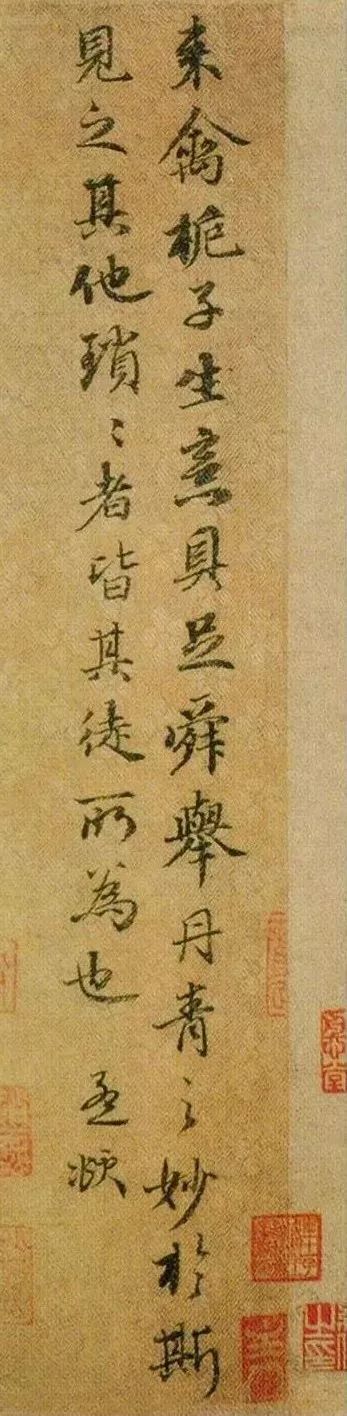 来禽栀子生意具足舜舉丹青之妙於斯
見之其他瑣〻者皆其徒所為也 孟頫